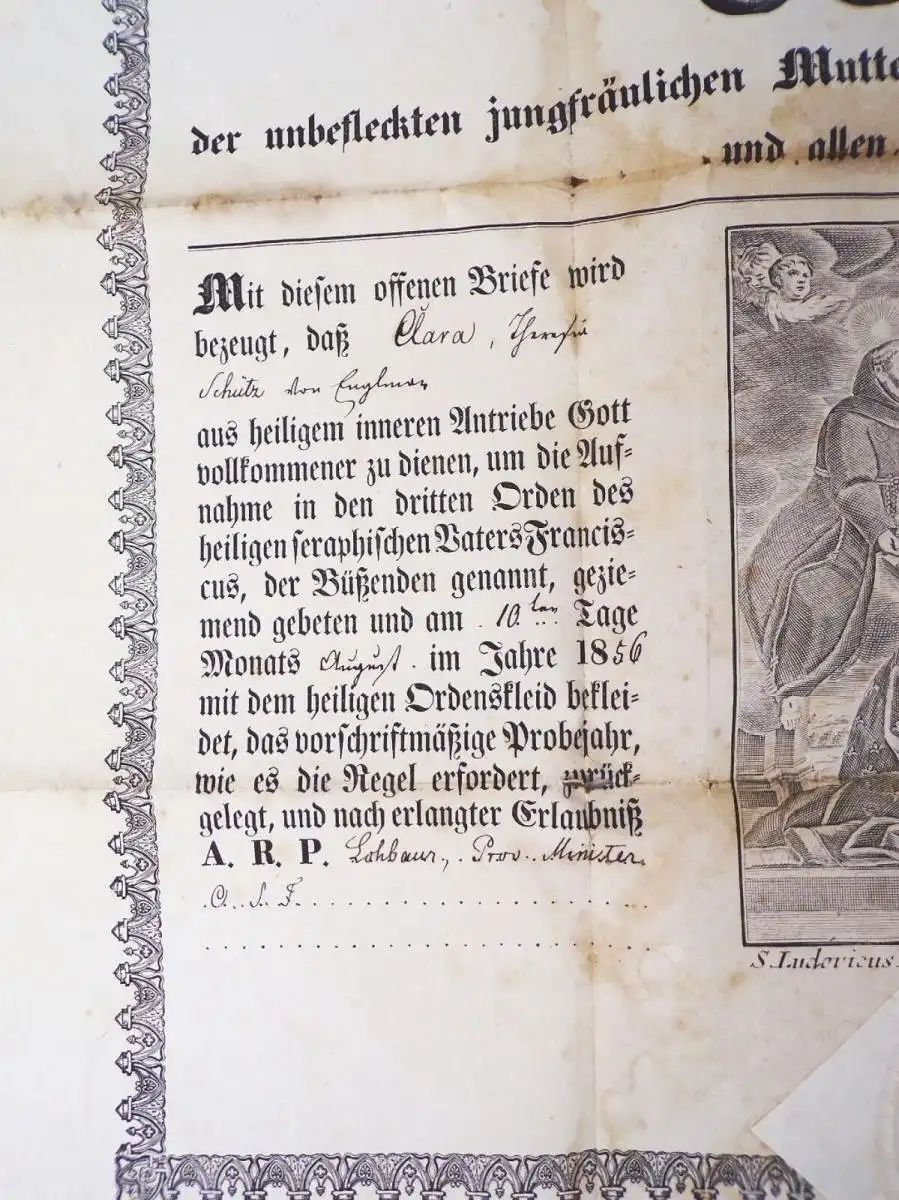 der unbefleckten jungfräulichen Mutte
und allen
Mit diesem offenen Briefe wird
bezeugt, daß Clara, Theresia
Schütz von Englmar
aus heiligem inneren Antriebe Gott
vollkommener zu dienen, um die Auf=
nahme in den dritten Orden des
heiligen seraphischen Vaters Francis=
cus, der Büßenden genannt, gezie=
mend gebeten und am 10ten Tage
Monats August im Jahre 1856
mit dem heiligen Ordenskleid beklei=
det, das vorschriftmäßige Probejahr,
wie es die Regel erfordert, zurück=
gelegt, und nach erlangter Erlaubniß
A. R. P. Lohbaur, Prov. Minister
O. S. F.
S. Ludovicus